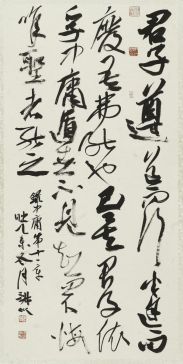 君子遵道而行半途而
廢吾弗能已矣君子依
乎中庸遁世不見知而不悔
唯聖者能之
錄中庸第十一章